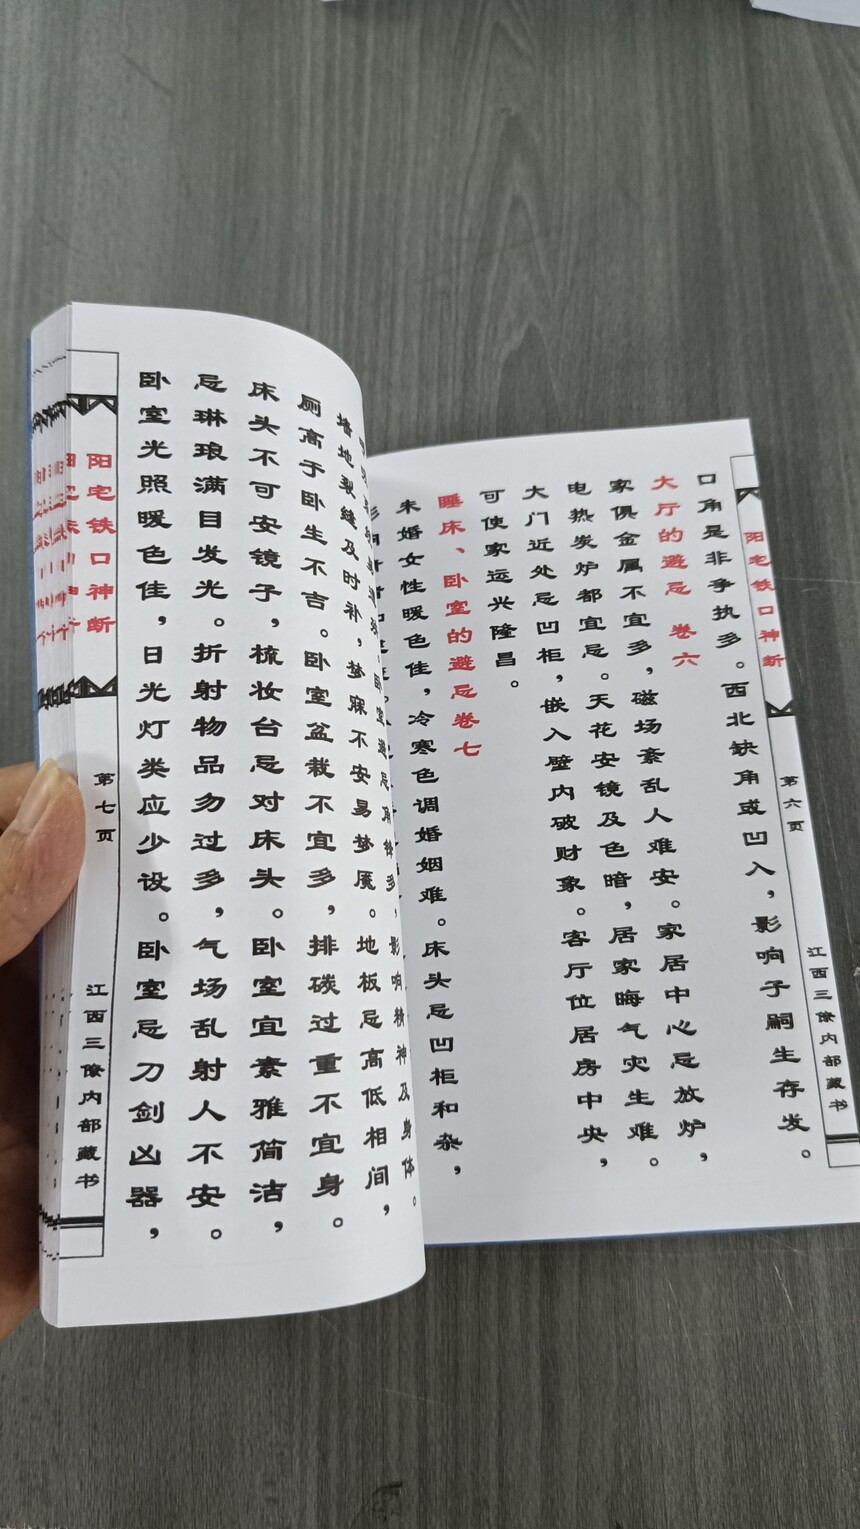 阳宅铁口神断
第六页
江西三僚内部藏书
口角是非争执多。西北缺角或凹入，影响子嗣生存发。
大厅的避忌 卷六
家俱金属不宜多，磁场紊乱人难安。家居中心忌放炉，
电热炭炉都宜忌。天花安镜及色暗，居家晦气灾生难。
大门近处忌凹柜，嵌入壁内破财象。客厅位居房中央，
可使家运兴隆昌。
睡床、卧室的避忌卷七
未婚女性暖色佳，冷寒色调婚姻难。床头忌凹柜和杂，
卧室避忌角锋多，影响精神及身体。
墙地裂缝及时补，梦寐不安易梦魇。地板忌高低相间，
厕高于卧生不吉。卧室盆栽不宜多，排碳过重不宜身。
床头不可安镜子，梳妆台忌对床头。卧室宜素雅简洁，
忌琳琅满目发光。折射物品勿过多，气场乱射人不安。
卧室光照暖色佳，日光灯类应少设。卧室忌刀剑凶器，
阳宅铁口神断
第七页
江西三僚内部藏书